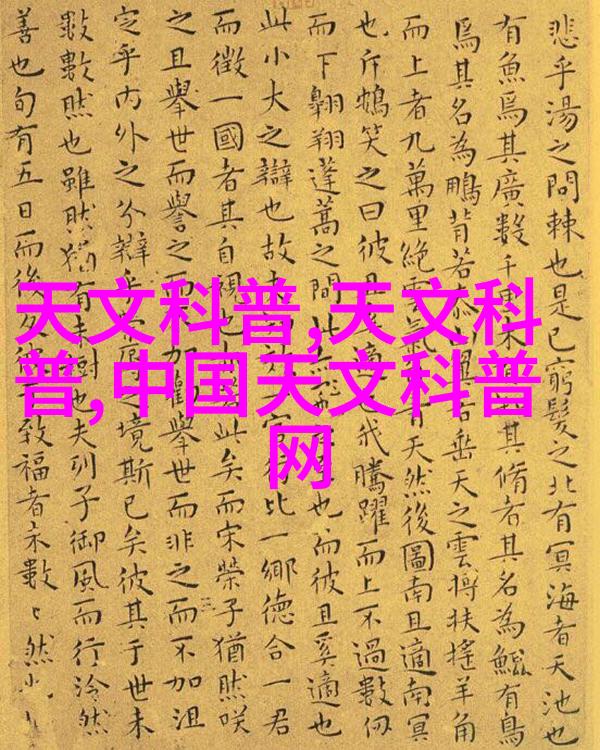 悲乎湯之問棘也是已窮髮之北有冥海者天池也
有魚焉其廣數千里未其脩者其名為鯤有鳥
焉其名為鵬背若泰山翼若垂天之雲摶扶搖羊角
而上者九萬里絕雲氣青天然後圖南且適南冥
也斥鴳笑之曰彼且適也我騰躍而上不過數仞
而下翱翔蓬蒿之間此亦也而彼且奚適也
此小大之辯也故夫知效一官行比一鄉德合一君
而徵一國者其自視也此矣而宋榮子猶然咲
之且舉世而譽之而不加勸舉世而非之而不加沮
定乎內外之分辯乎榮辱之境斯已矣彼其于世未
數數然也雖然猶有未樹也夫列子御風而行泠然
善也旬有五日而後反彼于致福者未數〻然也
天文科普,天文科
普,中国天文科普
网